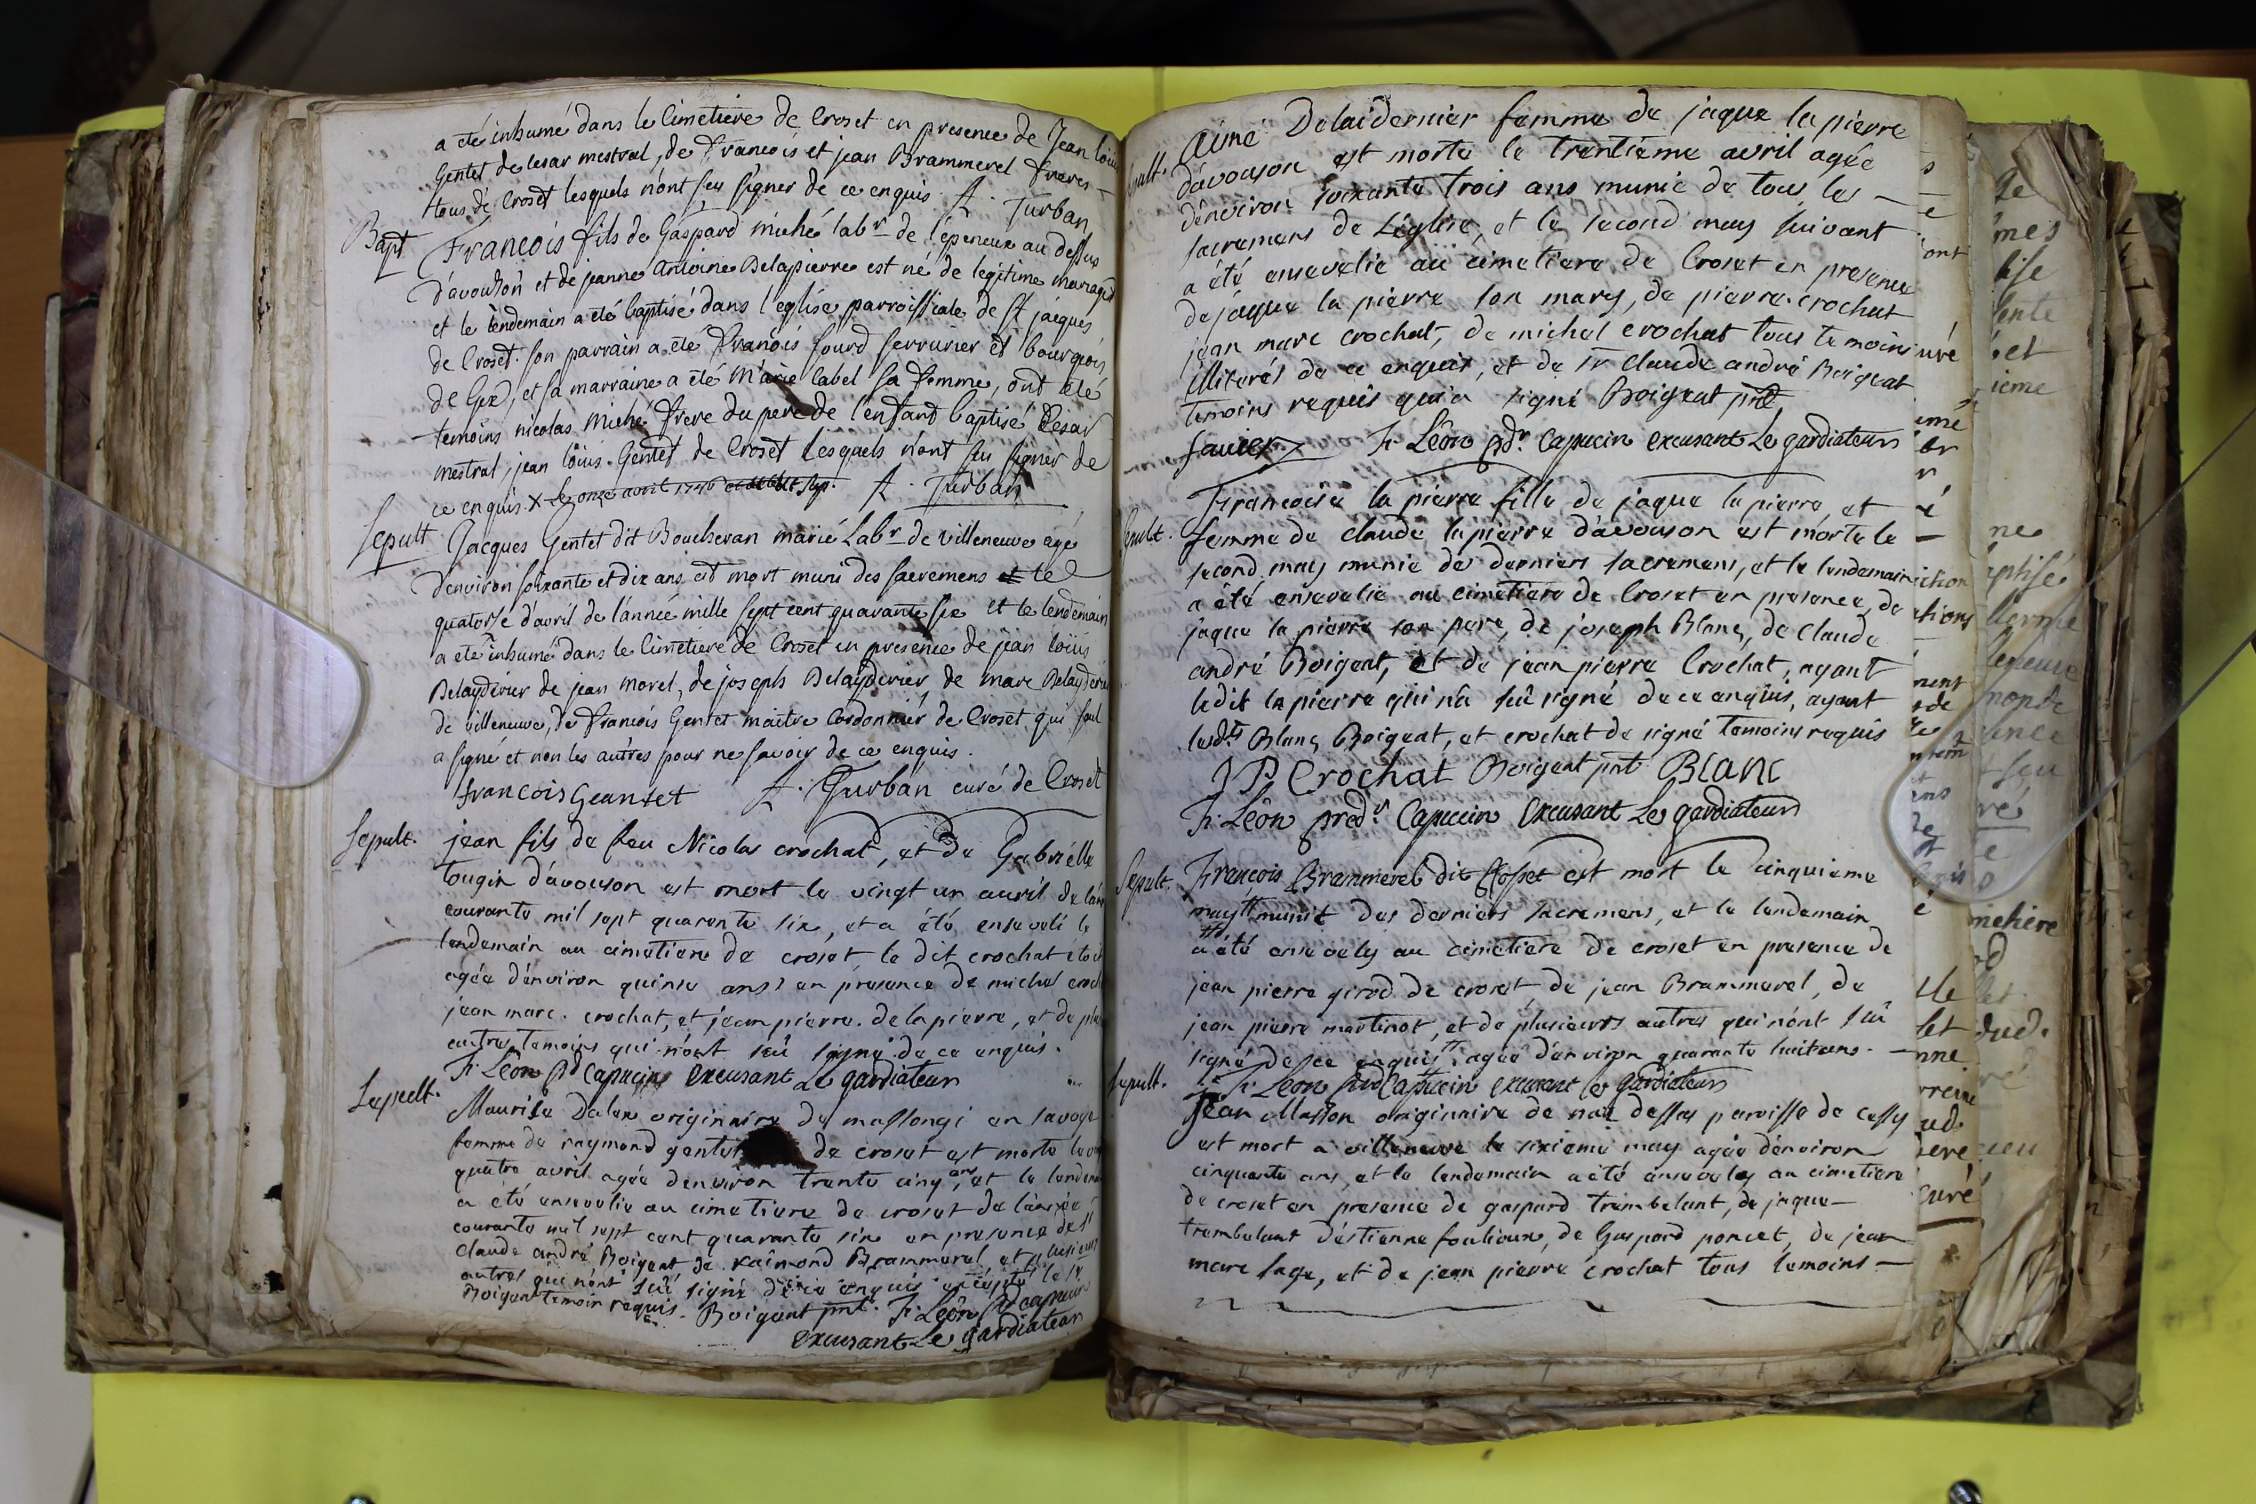 a eté inhumé dans le Cimetiere de Croset en presence de Jean loüis
Gentet de Cesar mestral, de francois et jean Brammerel freres
tous de Croset lesquels n'ont seu signer de ce enquis A. Turban
Bapt
François fils de Gaspard miché labr. de l'épeneux au dessus
d'avouson et de jeanne antoine Delapierre est né de legitime mariage
et le lendemain a eté baptisé dans l'eglise parroissiale de St jacques
de Croset. son parrain a eté François fourd serrurier et bourgeois
de Gex, et sa marraine a eté Marie label sa femme, ont eté
temoins nicolas miché frere du pere de l'enfant baptisé Cesar
mestral, jean loüis Gentet de Croset lesquels n'ont seu signer de
ce enquis X le onze avril 1746 A. Turban
Sepult
Jacques Gentet dit Boucheran marié Labr. de villeneuve agé
d'environ soixante et dix ans est mort muni des sacremens et le
quatorse d'avril de l'année mille sept cent quarante six et le lendemain
a eté inhumé dans le Cimetiere de Croset en presence de jean loüis
Delaydevier de jean morel, de joseph Delaydevier de marc Delaydevier
de villeneuve, de françois Gentet maitre Cordonnier de Croset qui seul
a signé et non les autres pour ne savoir de ce enquis.
francois Geantet A. Turban curé de Croset
Sepult.
jean fils de feu Nicolas crochat, et de Gabriélle
tougin d'avouson est mort le vingt un avril de l'an
courante mil sept quarante six, et a été enseveli le
lendemain au cimetiere de croset le dit crochat étoit
agée d'environ quinse ans, en présence de michel
jean marc. crochat, et jean pierre. de la pierre, et de
autres temoins qui n'ont seû signé de ce enquis.
F. Léon pd Capucin excusant Le gardiateur
Sepult.
Maurise Dalex originaire de massongi en savoye
femme de raymond gentet de croset est morte le
quatre avril agée d'environ trente cinq ans, et le
a été ensevelie au cimetiere de croset de l'année
courante mil sept cent quarante six en presence de Sr
Claude andré Boigeat de raimond Brammerel et plusieurs
autres qui n'ont seû signé de ce enquis excepté le Sr
Boigeat temoin requis. Boigeat pnt. F. Léon pd capucin
excusant Le gardiateur
Sepult.
Aimé Delaidernier femme de jaque la pierre
d'avouson est morte le trentiéme avril agée
d'énviron soixante trois ans munie de tous les
sacremens de L'église, et le second may suivant
a été ensevelie au cimetiere de Croset en presence
de jaque la pierre son mary, de pierre crochat
jean marc crochat, de michel crochat tous temoins
illiterés de ce enquis, et de Sr Claude andré Boigeat
temoins requis qui a signé Boigeat pnt
F. Léon pdr. Capucin excusant Le gardiateur
Sepult.
Francoise la pierre fille de jaque la pierre, et
femme de claude la pierre d'avouson est morte le
second may munie des derniers sacremens, et le lendemain
a été ensevelie au cimetiere de Croset en presence, de
jaque la pierre son pere, de joseph Blanc, de claude
andré Boigeat, et de jean pierre Crochat, ayant
ledit la pierre qui n'a seû signé de ce enquis, ayant
lesdts Blanc Boigeat, et crochat de signé temoins requis
J P Crochat Boigeat pnt BLANC
F. Léon predr. Capucin excusant Le gardiateur
Sepult.
François Brammerel dit Cosset est mort le cinquieme
may munit des derniers sacremens, et le lendemain
a été ensevely au cimetiere de croset en presence de
jean pierre girod de croset, de jean Brammerel, de
jean pierre martinot, et de plusieurs autres qui n'ont seû
signé de ce enquis agée d'environ quarante huit ans.
F. Léon pred Capucin excusant Le gardiateur
Sepult.
jean Masson originaire de dessus paroisse de cessy
est mort a villeneuve le sixiéme may agée d'environ
cinquante ans, et le lendemain a été ensevely au cimetiere
de croset en presence de gaspard trambelant, de jaque
trambelant d'éstienne foulioux, de Gaspard poncet, de jean
marc sage, et de jean pierre crochat tous temoins